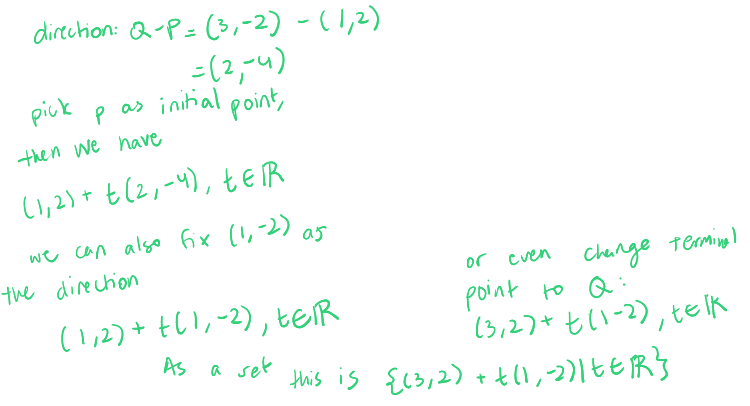 direction: Q-P = (3,-2) - (1,2)
= (2,-4)
pick p as initial point,
then we have
(1,2) + t(2,-4), t∈ℝ
we can also fix (1,-2) as
the direction
(1,2) + t(1,-2), t∈ℝ
or even change terminal
point to Q:
(3,2) + t(1-2), t∈ℝ
As a set this is {(3,2) + t(1,-2)|t∈ℝ}